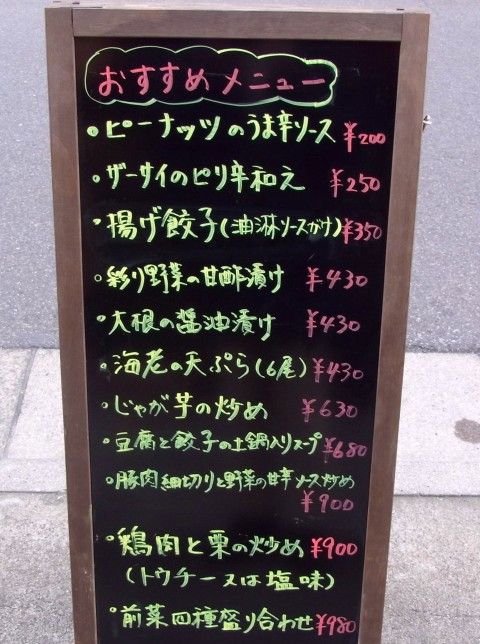 おすすめメニュー
。ピーナッツのうま辛ソース ¥200
。ザーサイのピリ辛和え ¥250
。揚げ餃子(油淋ソースがけ) ¥350
。彩り野菜の甘酢漬け ¥430
。大根の醤油漬け ¥430
。海老の天ぷら(6尾) ¥430
。じゃが芋の炒め ¥630
。豆腐と餃子の土鍋入りスープ ¥680
。豚肉細切りと野菜の甘辛ソース炒め
¥900
。鶏肉と栗の炒め ¥900
(トウチー又は塩味)
。前菜四種盛り合わせ ¥980